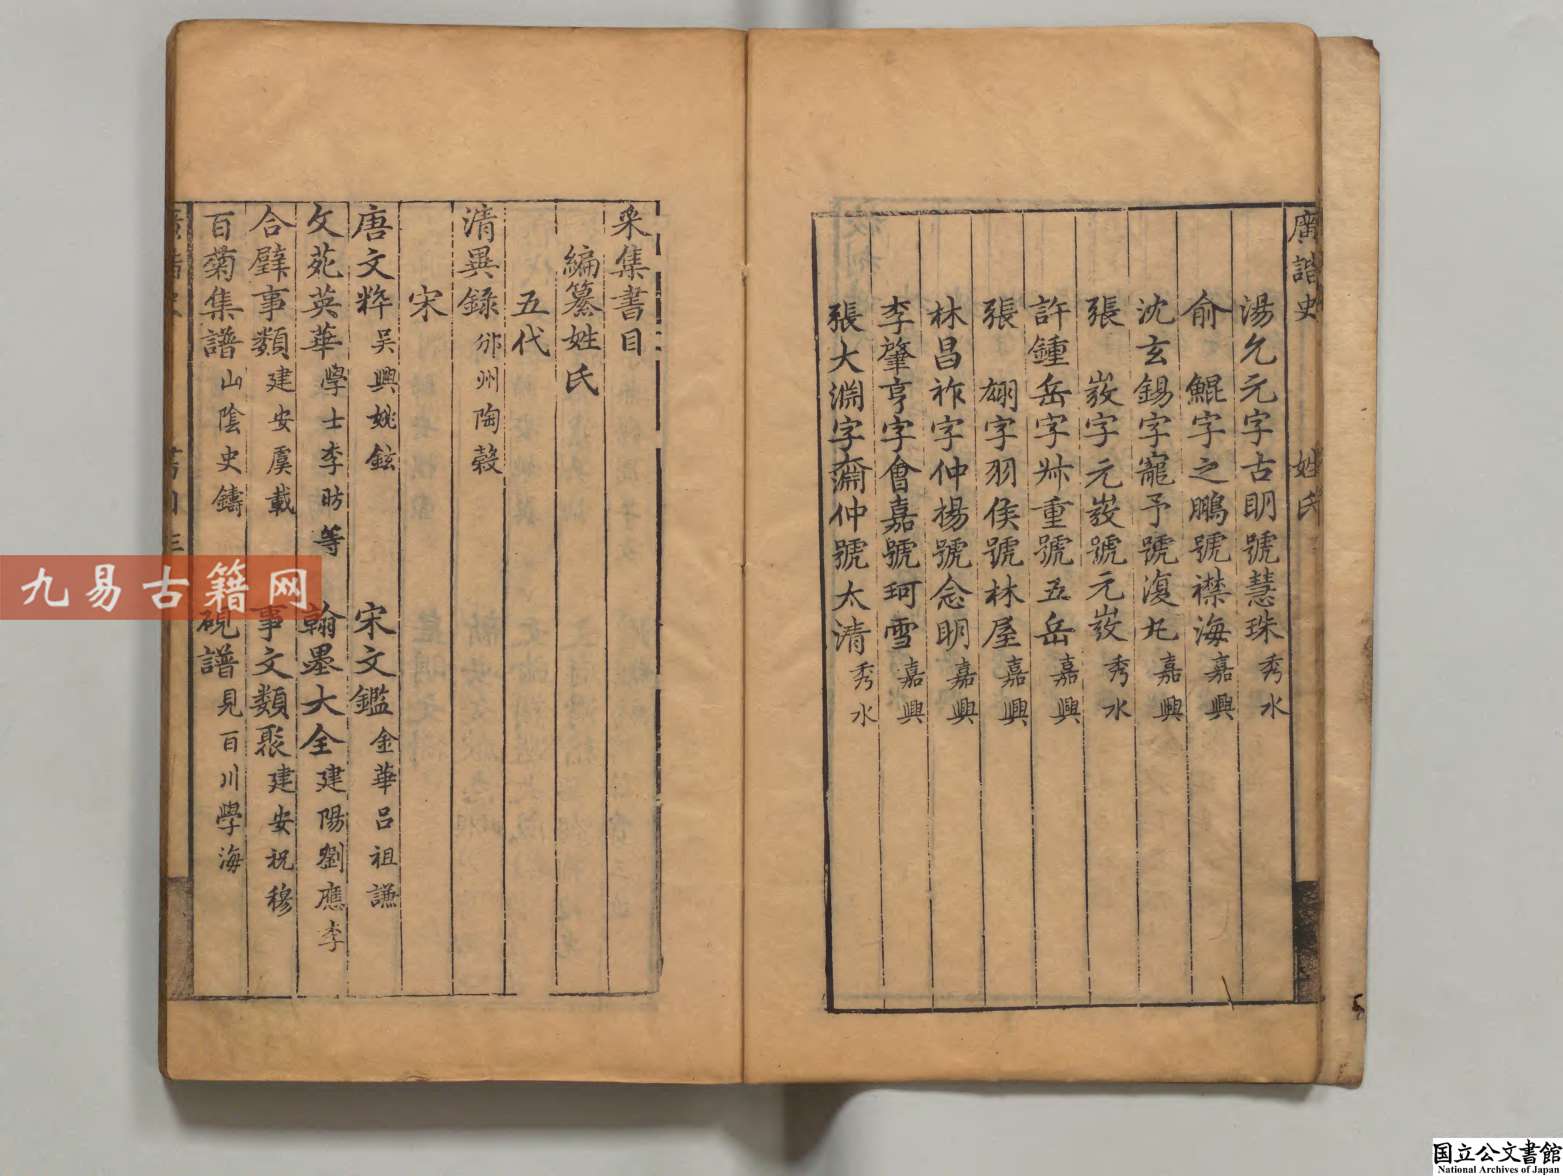 廣諧史
姓氏
湯允元字古明號慧珠秀水
俞鯤字之鵬號襟海嘉興
沈玄錫字寵予號復丸嘉興
張嶅字元嶅號元嶅秀水
許鍾岳字叔重號五岳嘉興
張翃字羽侯號林屋嘉興
林昌祚字仲楊號念明嘉興
李肇亨字會嘉號珂雪嘉興
張大淵字齋仲號太清秀水
采集書目
編纂姓氏
五代
清異錄邠州陶穀
宋
唐文粹吳興姚鉉
宋文鑑金華呂祖謙
文苑英華學士李昉等
翰墨大全建陽劉應李
合璧事類建安虞載
事文類聚建安祝穆
百菊集譜山陰史鑄
硯譜見百川學海
九易古籍网
国立公文書館
National Archives of Japan